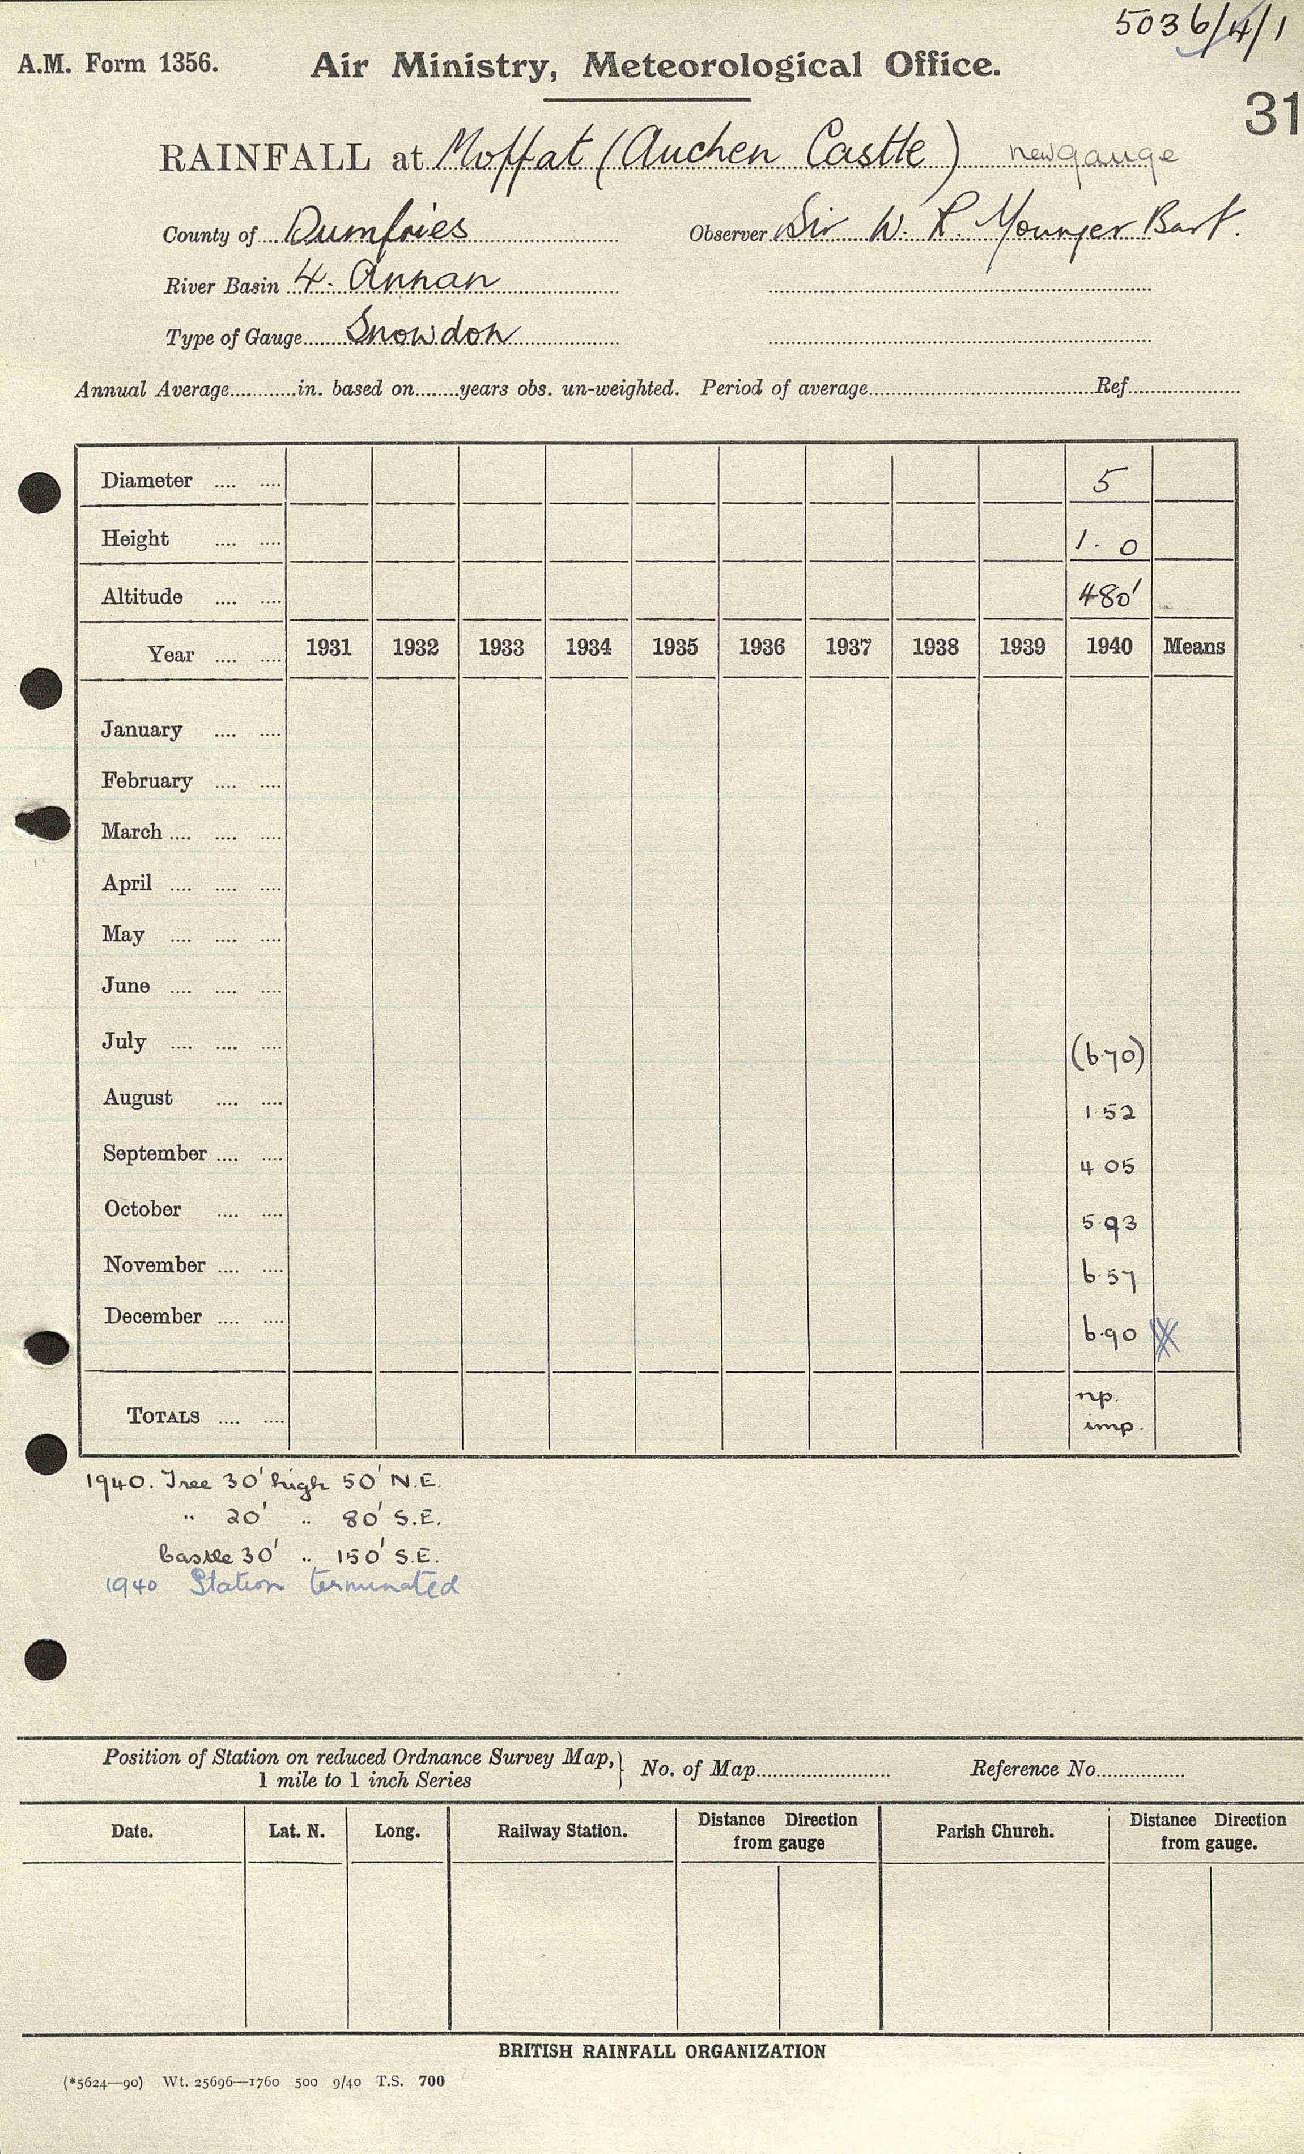 5036/4/1
A.M. Form 1356. Air Ministry, Meteorological Office.
31
RAINFALL at Moffat (Auchen Castle) new gauge
County of Dumfries Observer Sir W. R. Younger Bart.
River Basin 4. Annan
Type of Gauge Snowdon
Annual Average............in. based on........years obs. un-weighted. Period of average........................Ref....................
Diameter .... .... 5
Height .... .... 1. 0
Altitude .... .... 480'
Year .... .... 1931 1932 1933 1934 1935 1936 1937 1938 1939 1940 Means
January .... ....
February .... ....
March .... .... ....
April .... .... ....
May .... .... ....
June .... .... ....
July .... .... .... (6.70)
August .... .... 1.52
September .... .... 4 05
October .... .... 5 93
November .... .... 6.57
December .... .... 6.90
TOTALS .... .... np.
imp.
1940. Tree 30' high 50' N.E.
" 20' .. 80' S.E.
Castle 30' .. 150' S.E.
1940 Station terminated
Position of Station on reduced Ordnance Survey Map, 1 mile to 1 inch Series } No. of Map........................ Reference No................
Date. Lat. N. Long. Railway Station. Distance Direction from gauge Parish Church. Distance Direction from gauge.
BRITISH RAINFALL ORGANIZATION
(*5624—90) Wt. 25696—1760 500 9/40 T.S. 700